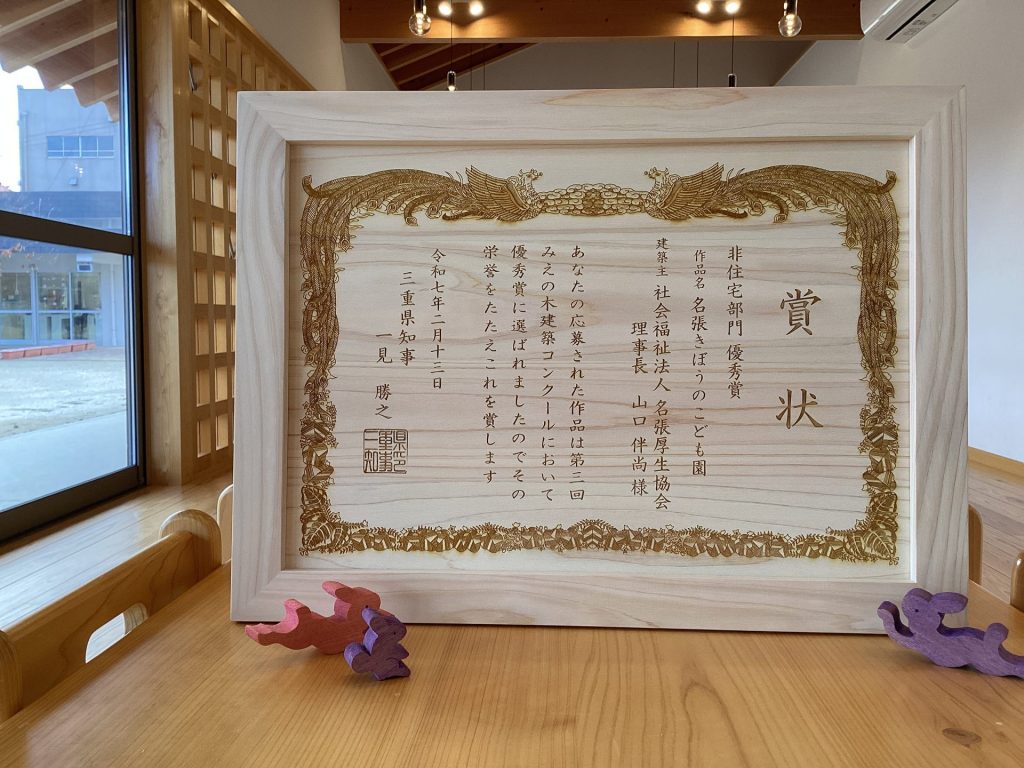 賞状
非住宅部門 優秀賞
作品名 名張きぼうのこども園
建築主 社会福祉法人 名張厚生協会
理事長 山口 伴尚 様
あなたの応募された作品は第三回
みえの木建築コンクールにおいて
優秀賞に選ばれましたのでその
栄誉をたたえこれを賞します
令和七年二月十三日
三重県知事
一見 勝之